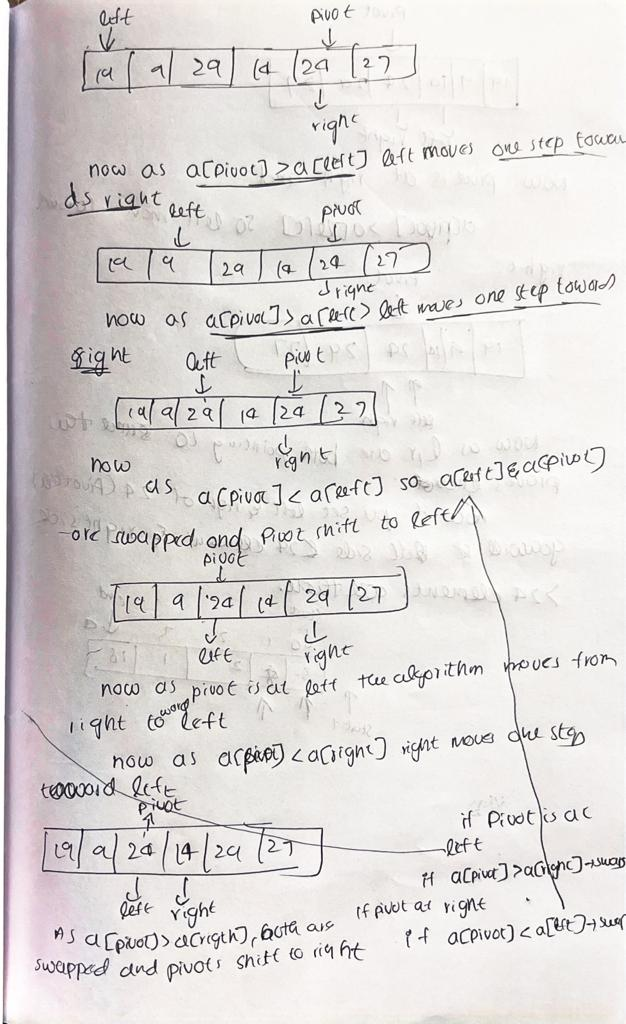 left pivot
19 9 29 14 24 27
right
now as a[pivot] > a[left] left moves one step towar
ds right
left pivot
19 9 29 14 24 27
right
now as a[pivot] > a[left] > left moves one step toward
right left pivot
19 9 29 14 24 27
right
now
as a[pivot] < a[left] so a[left] & a[pivot]
are swapped and Pivot shift to left
pivot
19 9 24 14 29 27
left right
now as pivot is at left the algorithm moves from
right toward left
now as a[pivot] < a[right] right moves one step
toward left
pivot
19 9 24 14 29 27
left right
As a[pivot] > a[rigth], both are
swapped and pivots shift to right
if Pivot is at
left
if a[pivot] > a[right] → swap
if pivot at right
if a[pivot] < a[left] → swap